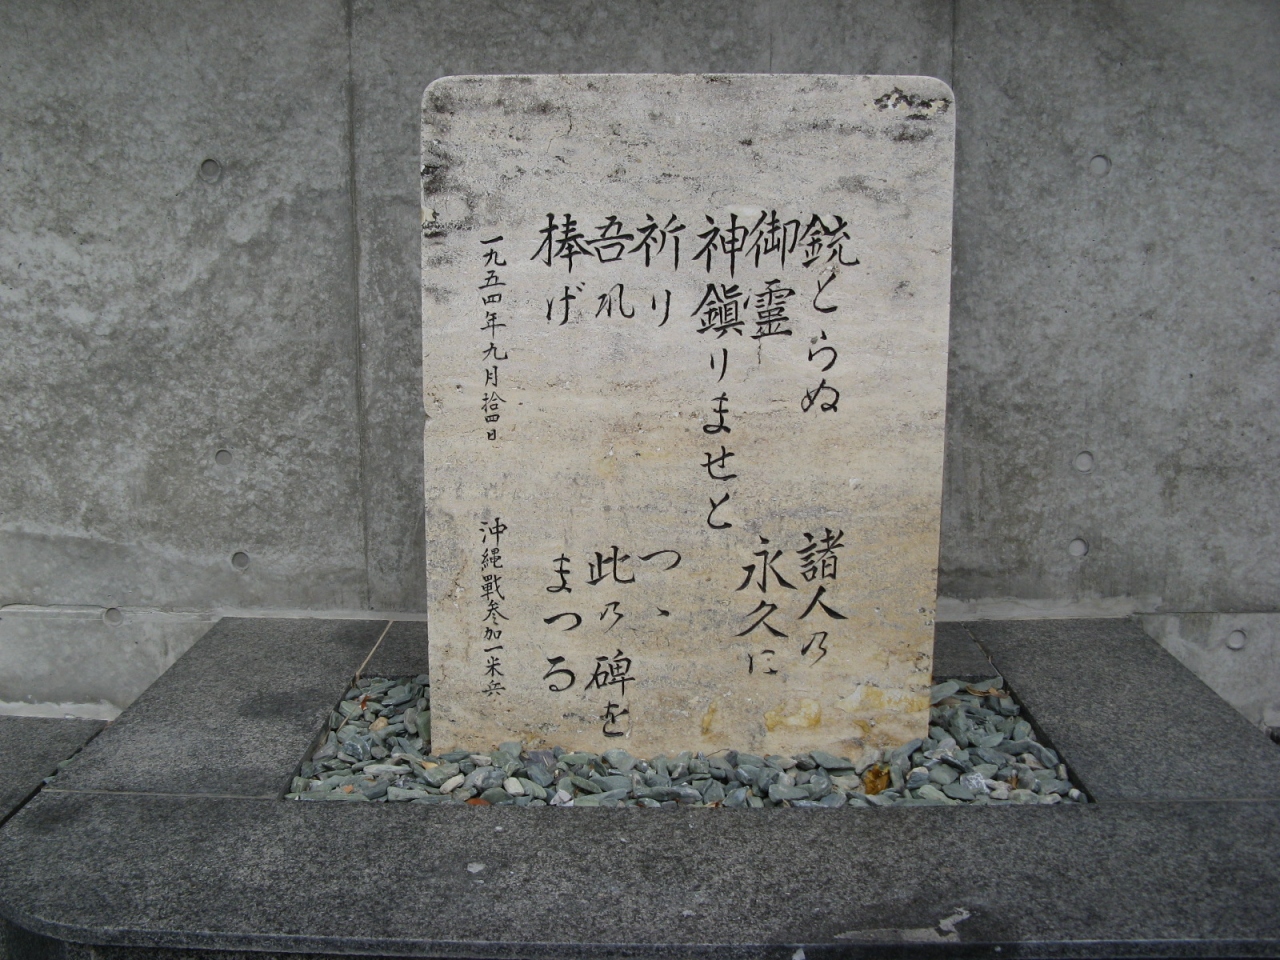 銃とらぬ 諸人乃
御霊 永久に
神鎭りませと
祈り つゝ
吾れ 此乃碑を
棒げ まつる
一九五四年九月拾四日 沖縄戰参加一米兵